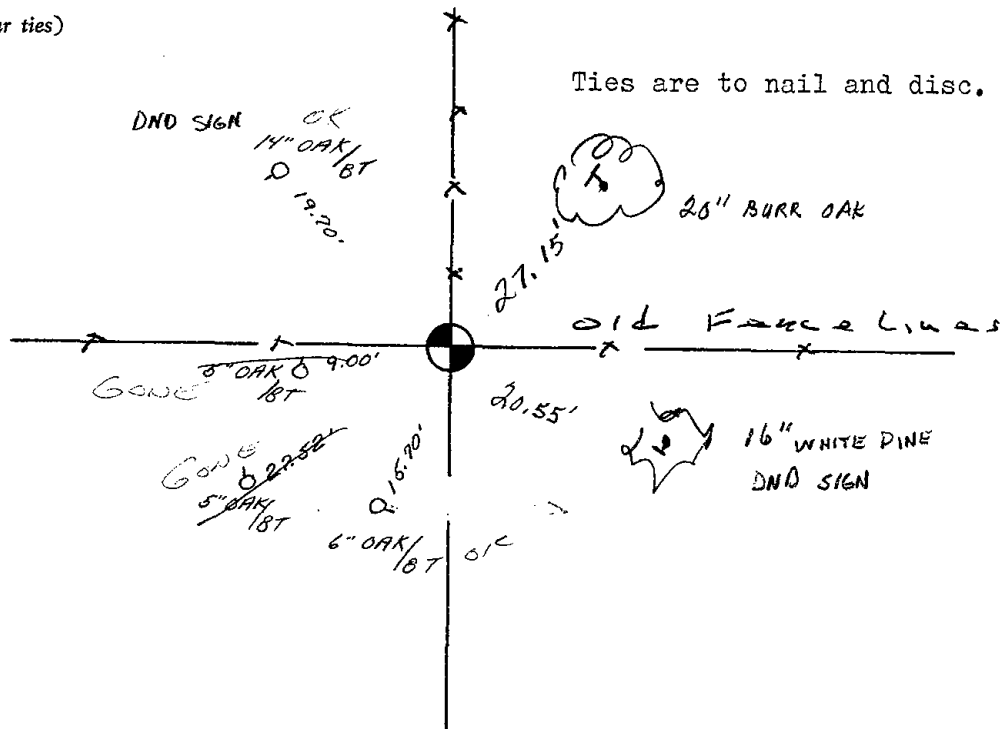 r ties)
Ties are to nail and disc.
DND SIGN
OK
14" OAK/
BT
19.70'
20" BURR OAK
27.15'
Old Fence Lines
GONE
OAK
9.00'
/BT
20.55'
16" WHITE PINE
DND SIGN
GONE
27.52'
5" OAK/
/BT
15.70'
6" OAK/
BT
OK